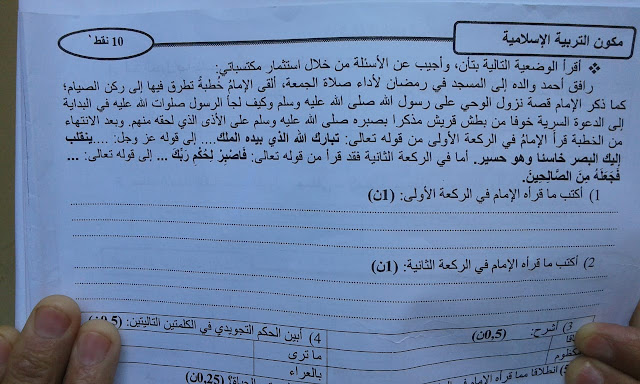 مكون التربية الإسلامية
10 نقط
❖ أقرأ الوضعية التالية بتأن، وأجيب عن الأسئلة من خلال استثمار مكتسباتي:
رافق أحمد والده إلى المسجد في رمضان لأداء صلاة الجمعة، ألقى الإمامُ خُطبةً تطرق فيها إلى ركن الصيام؛
كما ذكر الإمام قصة نزول الوحي على رسول الله صلى الله عليه وسلم وكيف لجأ الرسول صلوات الله عليه في البداية
إلى الدعوة السرية خوفا من بطش قريش مذكرا بصبره صلى الله عليه وسلم على الأذى الذي لحقه منهم. وبعد الانتهاء
من الخطبة قرأ الإمامُ في الركعة الأولى من قوله تعالى: تبارك الله الذي بيده الملك.... إلى قوله عز وجل: ....ينقلب
إليك البصر خاسئا وهو حسير. أما في الركعة الثانية فقد قرأ من قوله تعالى: فَاصْبِرْ لِحُكْمِ رَبِّكَ ... إلى قوله تعالى: ...
فَجَعَلَهُ مِنَ الصَّالِحِينَ.
1) أكتب ما قرأه الإمام في الركعة الأولى: (1ن)
2) أكتب ما قرأه الإمام في الركعة الثانية: (1ن)
3) أشرح: (0,5ن)
4) أبين الحكم التجويدي في الكلمتين التاليتين: (0,5ن)
ما ترى
مكظوم
بالعراء
5) انطلاقا مما قرأه الإمام في
الحياة؟ (0,25ن)